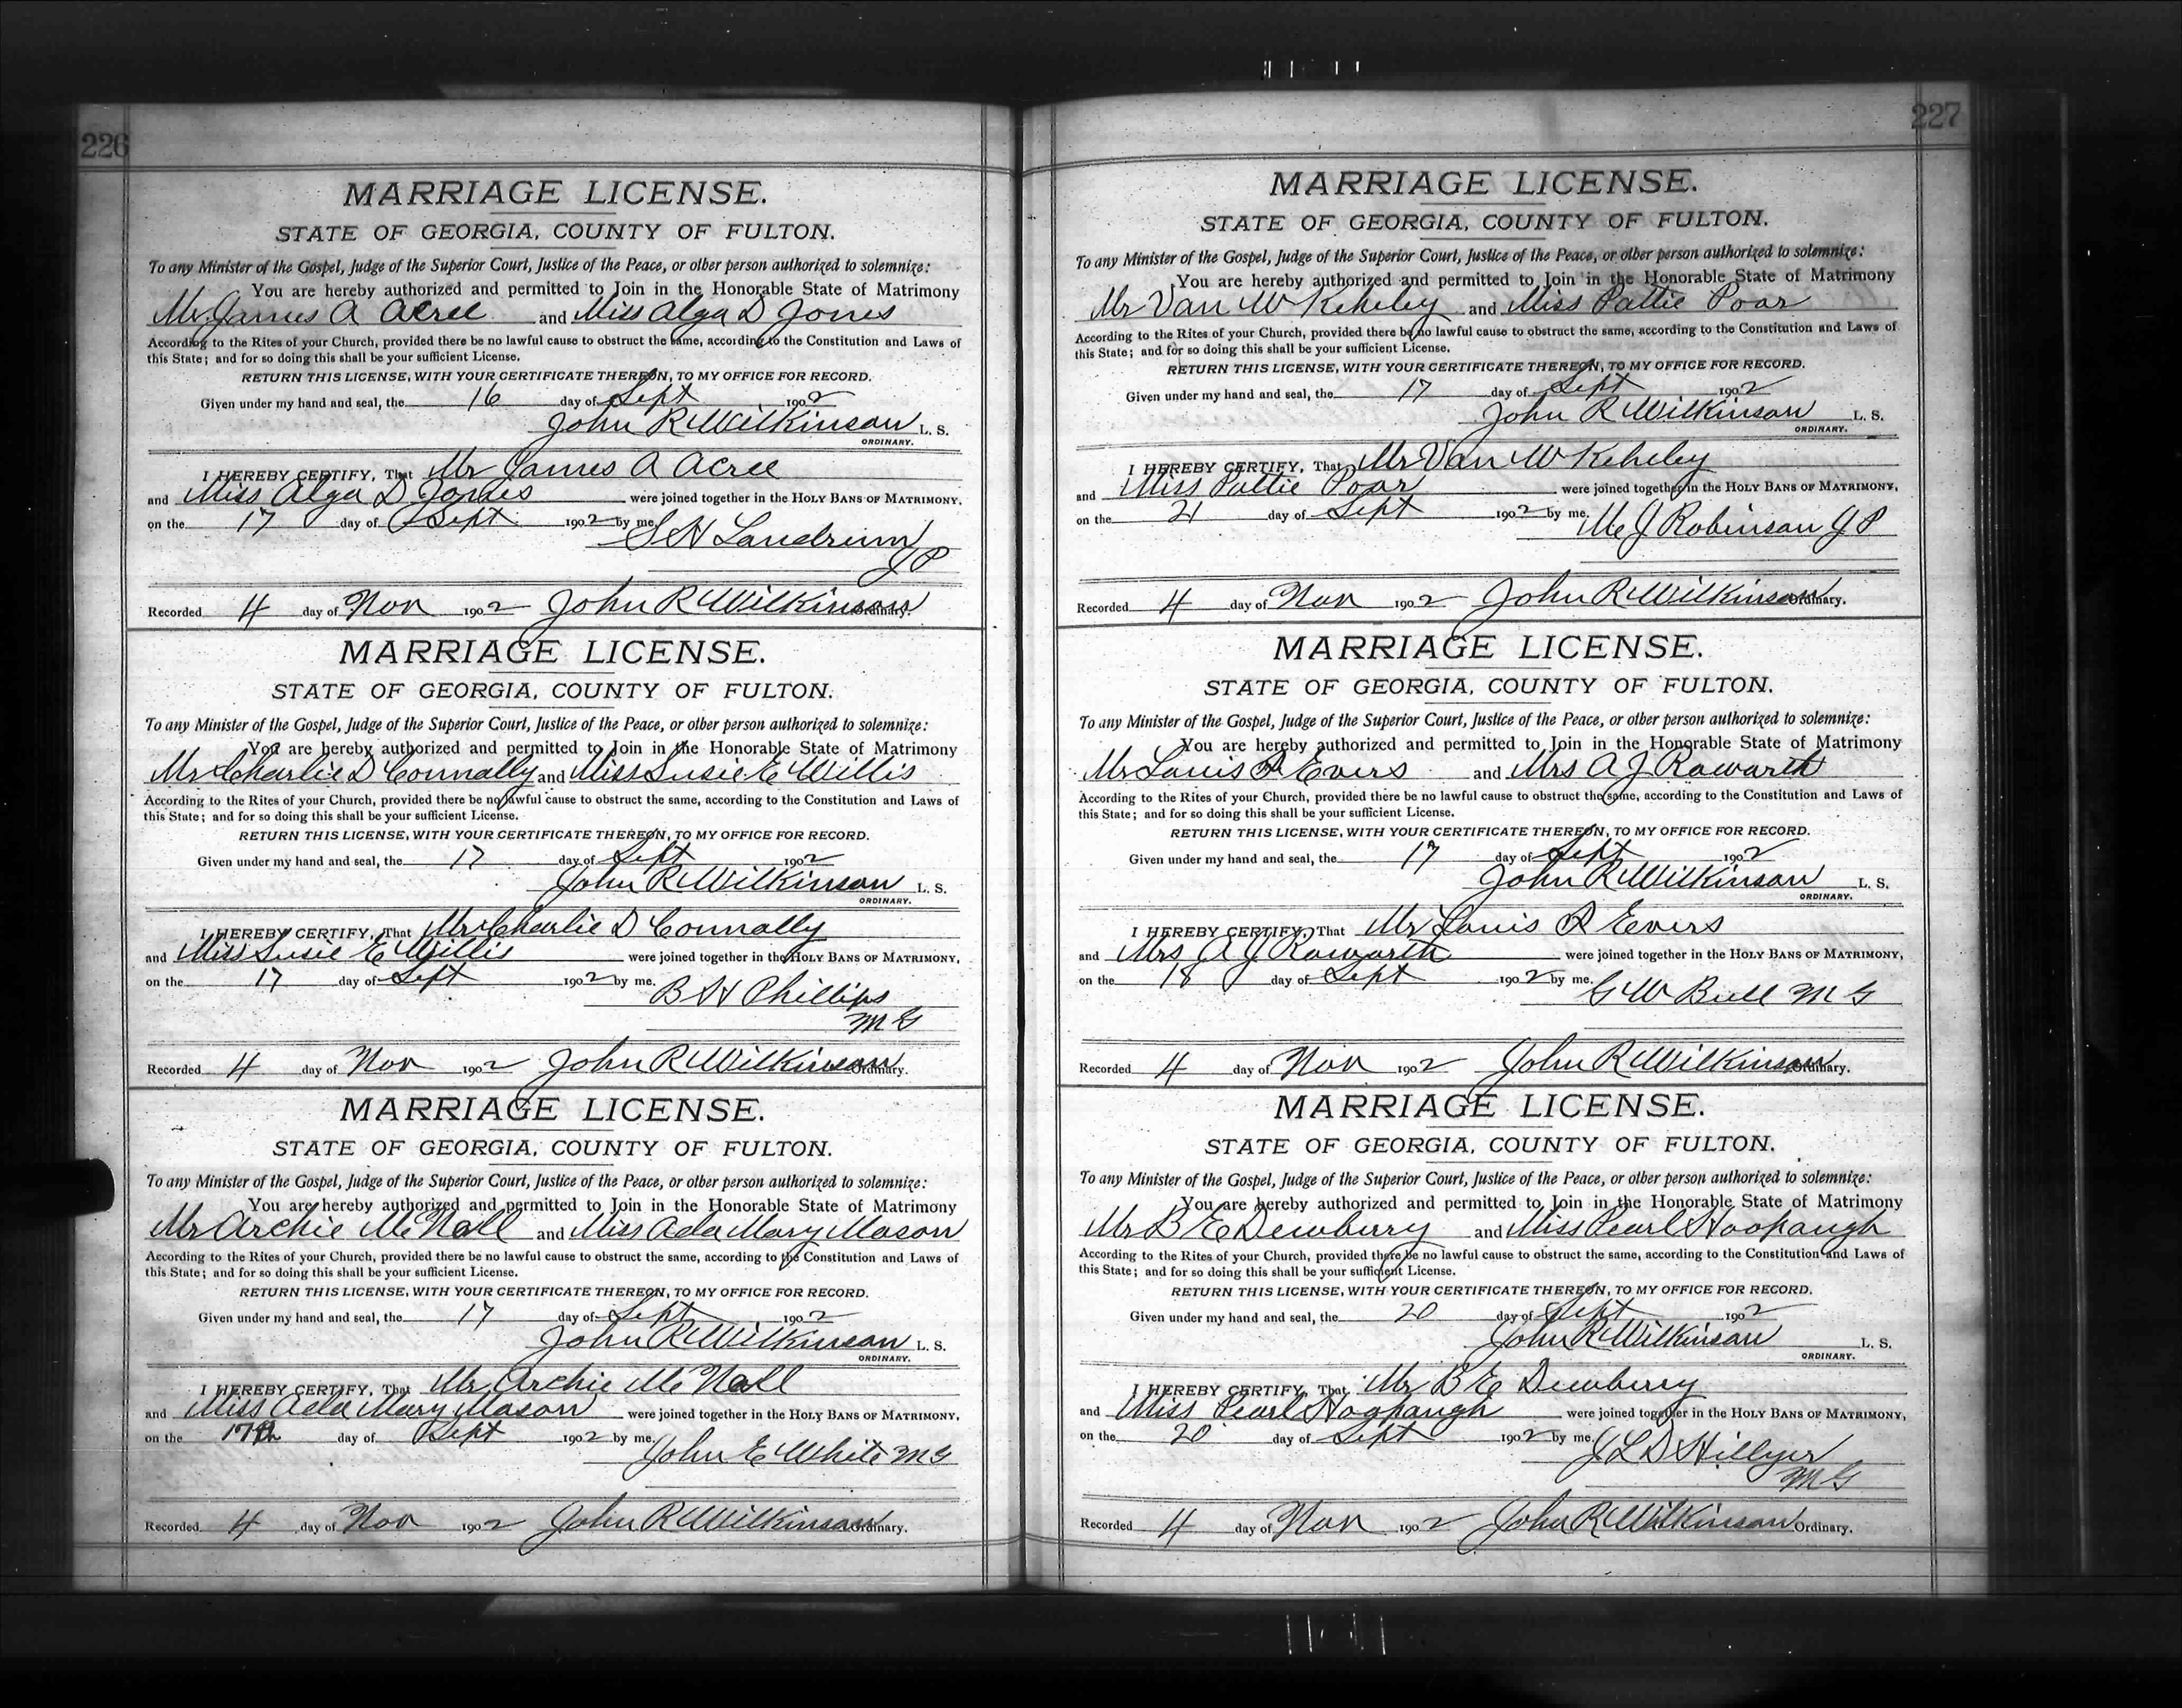 226
MARRIAGE LICENSE.
STATE OF GEORGIA, COUNTY OF FULTON.
To any Minister of the Gospel, Judge of the Superior Court, Justice of the Peace, or other person authorized to solemnize:
You are hereby authorized and permitted to Join in the Honorable State of Matrimony
Mr James A Acree and Miss Alga D Jones
According to the Rites of your Church, provided there be no lawful cause to obstruct the same, according to the Constitution and Laws of
this State; and for so doing this shall be your sufficient License.
RETURN THIS LICENSE, WITH YOUR CERTIFICATE THEREON, TO MY OFFICE FOR RECORD.
Given under my hand and seal, the 16 day of Sept 1902
John R Wilkinson L. S.
ORDINARY.
I HEREBY CERTIFY, That Mr James A Acree
and Miss Alga D Jones were joined together in the HOLY BANS OF MATRIMONY,
on the 17 day of Sept 1902 by me.
S H Landrum
J P
Recorded 4 day of Nov 1902 John R Wilkinson Ordinary.
MARRIAGE LICENSE.
STATE OF GEORGIA, COUNTY OF FULTON.
To any Minister of the Gospel, Judge of the Superior Court, Justice of the Peace, or other person authorized to solemnize:
You are hereby authorized and permitted to Join in the Honorable State of Matrimony
Mr Charlie D Connally and Miss Susie E Willis
According to the Rites of your Church, provided there be no lawful cause to obstruct the same, according to the Constitution and Laws of
this State; and for so doing this shall be your sufficient License.
RETURN THIS LICENSE, WITH YOUR CERTIFICATE THEREON, TO MY OFFICE FOR RECORD.
Given under my hand and seal, the 17 day of Sept 1902
John R Wilkinson L. S.
ORDINARY.
I HEREBY CERTIFY, That Mr Charlie D Connally
and Miss Susie E Willis were joined together in the HOLY BANS OF MATRIMONY,
on the 17 day of Sept 1902 by me.
B H Phillips
M G
Recorded 4 day of Nov 1902 John R Wilkinson Ordinary.
MARRIAGE LICENSE.
STATE OF GEORGIA, COUNTY OF FULTON.
To any Minister of the Gospel, Judge of the Superior Court, Justice of the Peace, or other person authorized to solemnize:
You are hereby authorized and permitted to Join in the Honorable State of Matrimony
Mr Archie McNall and Miss Ada Mary Mason
According to the Rites of your Church, provided there be no lawful cause to obstruct the same, according to the Constitution and Laws of
this State; and for so doing this shall be your sufficient License.
RETURN THIS LICENSE, WITH YOUR CERTIFICATE THEREON, TO MY OFFICE FOR RECORD.
Given under my hand and seal, the 17 day of Sept 1902
John R Wilkinson L. S.
ORDINARY.
I HEREBY CERTIFY, That Mr Archie McNall
and Miss Ada Mary Mason were joined together in the HOLY BANS OF MATRIMONY,
on the 17th day of Sept 1902 by me.
John E White M G
Recorded 4 day of Nov 1902 John R Wilkinson Ordinary.
227
MARRIAGE LICENSE.
STATE OF GEORGIA, COUNTY OF FULTON.
To any Minister of the Gospel, Judge of the Superior Court, Justice of the Peace, or other person authorized to solemnize:
You are hereby authorized and permitted to Join in the Honorable State of Matrimony
Mr Van W Keheley and Miss Pattie Poar
According to the Rites of your Church, provided there be no lawful cause to obstruct the same, according to the Constitution and Laws of
this State; and for so doing this shall be your sufficient License.
RETURN THIS LICENSE, WITH YOUR CERTIFICATE THEREON, TO MY OFFICE FOR RECORD.
Given under my hand and seal, the 17 day of Sept 1902
John R Wilkinson L. S.
ORDINARY.
I HEREBY CERTIFY, That Mr Van W Keheley
and Miss Pattie Poar were joined together in the HOLY BANS OF MATRIMONY,
on the 21 day of Sept 1902 by me.
J Robinson J P
Recorded 4 day of Nov 1902 John R Wilkinson Ordinary.
MARRIAGE LICENSE.
STATE OF GEORGIA, COUNTY OF FULTON.
To any Minister of the Gospel, Judge of the Superior Court, Justice of the Peace, or other person authorized to solemnize:
You are hereby authorized and permitted to Join in the Honorable State of Matrimony
Mr Louis R Evers and Mrs A J Rowarth
According to the Rites of your Church, provided there be no lawful cause to obstruct the same, according to the Constitution and Laws of
this State; and for so doing this shall be your sufficient License.
RETURN THIS LICENSE, WITH YOUR CERTIFICATE THEREON, TO MY OFFICE FOR RECORD.
Given under my hand and seal, the 17 day of Sept 1902
John R Wilkinson L. S.
ORDINARY.
I HEREBY CERTIFY, That Mr Louis R Evers
and Mrs A J Rowarth were joined together in the HOLY BANS OF MATRIMONY,
on the 18 day of Sept 1902 by me.
G W Bull M G
Recorded 4 day of Nov 1902 John R Wilkinson Ordinary.
MARRIAGE LICENSE.
STATE OF GEORGIA, COUNTY OF FULTON.
To any Minister of the Gospel, Judge of the Superior Court, Justice of the Peace, or other person authorized to solemnize:
You are hereby authorized and permitted to Join in the Honorable State of Matrimony
Mr B E Dewberry and Miss Pearl Hoopaugh
According to the Rites of your Church, provided there be no lawful cause to obstruct the same, according to the Constitution and Laws of
this State; and for so doing this shall be your sufficient License.
RETURN THIS LICENSE, WITH YOUR CERTIFICATE THEREON, TO MY OFFICE FOR RECORD.
Given under my hand and seal, the 20 day of Sept 1902
John R Wilkinson L. S.
ORDINARY.
I HEREBY CERTIFY, That Mr B E Dewberry
and Miss Pearl Hoopaugh were joined together in the HOLY BANS OF MATRIMONY,
on the 20 day of Sept 1902 by me.
J L D Hillyer
M G
Recorded 4 day of Nov 1902 John R Wilkinson Ordinary.